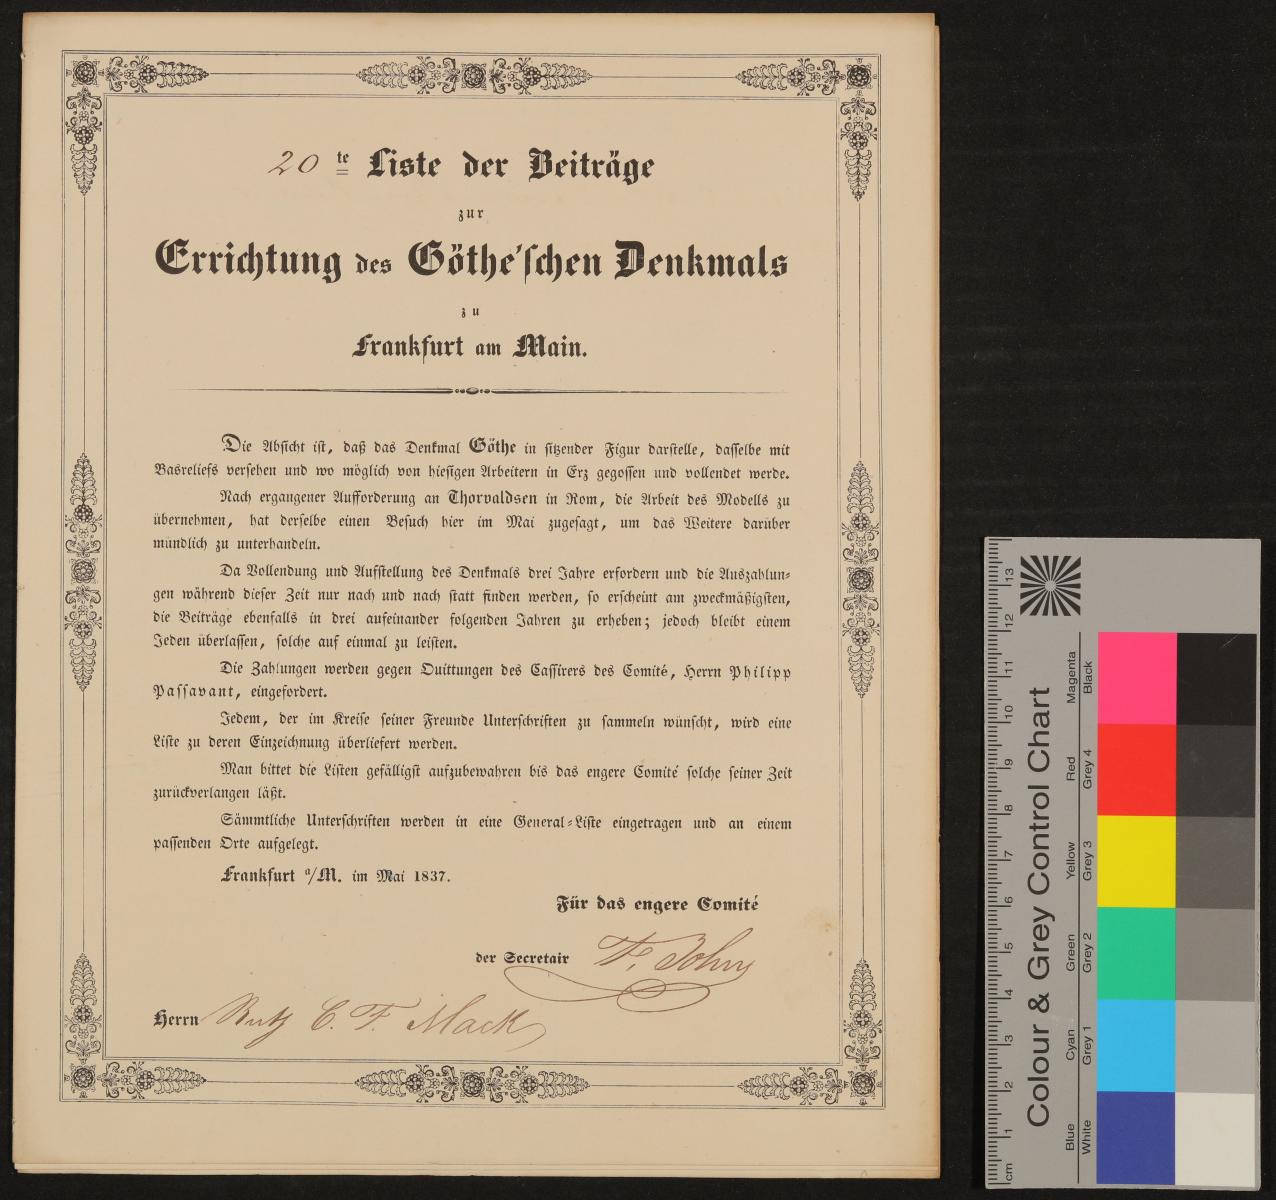 20te Liste der Beiträge
zur
Errichtung des Göthe'schen Denkmals
zu
Frankfurt am Main.
Die Absicht ist, daß das Denkmal Göthe in sitzender Figur darstelle, dasselbe mit
Basreliefs versehen und wo möglich von hiesigen Arbeitern in Erz gegossen und vollendet werde.
Nach ergangener Aufforderung an Thorvaldsen in Rom, die Arbeit des Modells zu
übernehmen, hat derselbe einen Besuch hier im Mai zugesagt, um das Weitere darüber
mündlich zu unterhandeln.
Da Vollendung und Aufstellung des Denkmals drei Jahre erfordern und die Auszahlun-
gen während dieser Zeit nur nach und nach statt finden werden, so erscheint am zweckmäßigsten,
die Beiträge ebenfalls in drei aufeinander folgenden Jahren zu erheben; jedoch bleibt einem
Jeden überlassen, solche auf einmal zu leisten.
Die Zahlungen werden gegen Quittungen des Cassirers des Comité, Herrn Philipp
Passavant, eingefordert.
Jedem, der im Kreise seiner Freunde Unterschriften zu sammeln wünscht, wird eine
Liste zu deren Einzeichnung überliefert werden.
Man bittet die Listen gefälligst aufzubewahren bis das engere Comité solche seiner Zeit
zurückverlangen läßt.
Sämmtliche Unterschriften werden in eine General-Liste eingetragen und an einem
passenden Orte aufgelegt.
Frankfurt a/M. im Mai 1837.
Für das engere Comité
der Secretair F. John
Herrn C. F. Mack
Colour & Grey Control Chart
Blue Cyan Green Yellow Red Magenta
White Grey 1 Grey 2 Grey 3 Grey 4 Black
cm 1 2 3 4 5 6 7 8 9 10 11 12 13